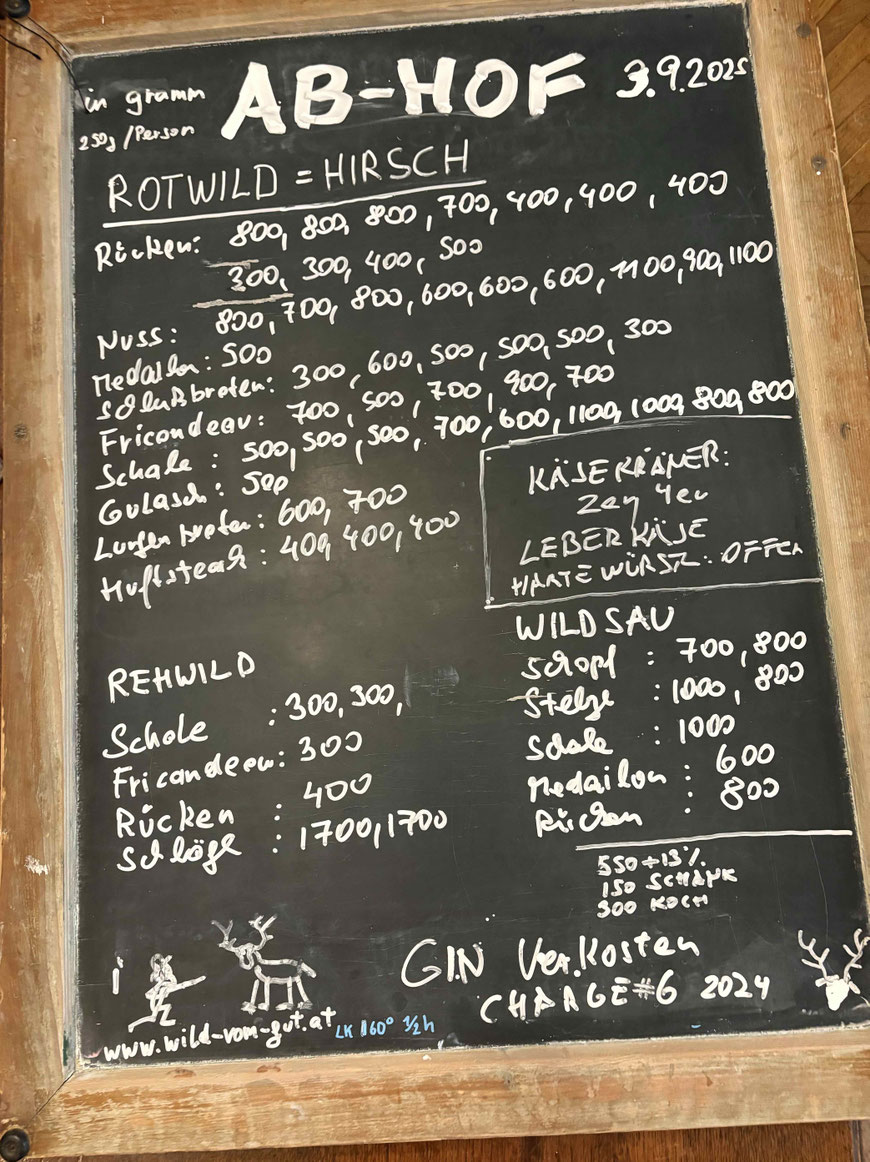 in gramm AB-HOF 3.9.2025
250g/Person
ROTWILD = HIRSCH
Rücken: 800, 800, 800, 700, 400, 400, 400
300, 300, 400, 500
Nuss: 800, 700, 800, 600, 600, 600, 1100, 900, 1100
Medaillon: 500
Schlußbraten: 300, 600, 500, 500, 500, 300
Fricondeau: 700, 500, 700, 900, 700
Schale: 500, 500, 500, 700, 600, 1100, 1000, 800, 800
Gulasch: 500
Lungenbraten: 600, 700
Huftsteak: 400, 400, 400
KÄSEKRAINER:
2er 4er
LEBERKÄSE
HARTE WÜRSTL: OFFEN
REHWILD
Schale: 300, 300,
Fricandeau: 300
Rücken: 400
Schlögl: 1700, 1700
WILDSAU
Schopf: 700, 800
Stelze: 1000, 800
Schale: 1000
Medailon: 600
Rücken: 800
550 + 13%
150 SCHANK
300 KOCH
GIN Ver.Kosten
CHARGE #6 2024
www.wild-vom-gut.at LK 160° 1/2h